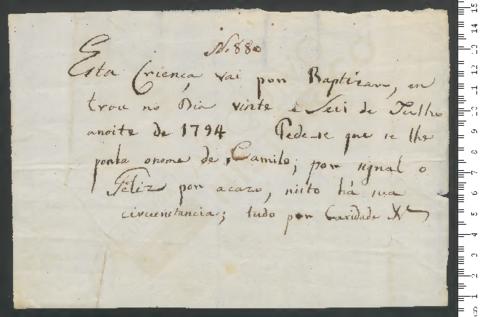 Nº 880
Esta Criença, vai por Baptizar, en
trou no Dia vinte e Seis de Julho
anoite de 1794 Pede-se que se lhe
ponha onome de Camilo; por signal o
Feliz por acazo, nisto há sua
circunstancia; tudo por Caridade